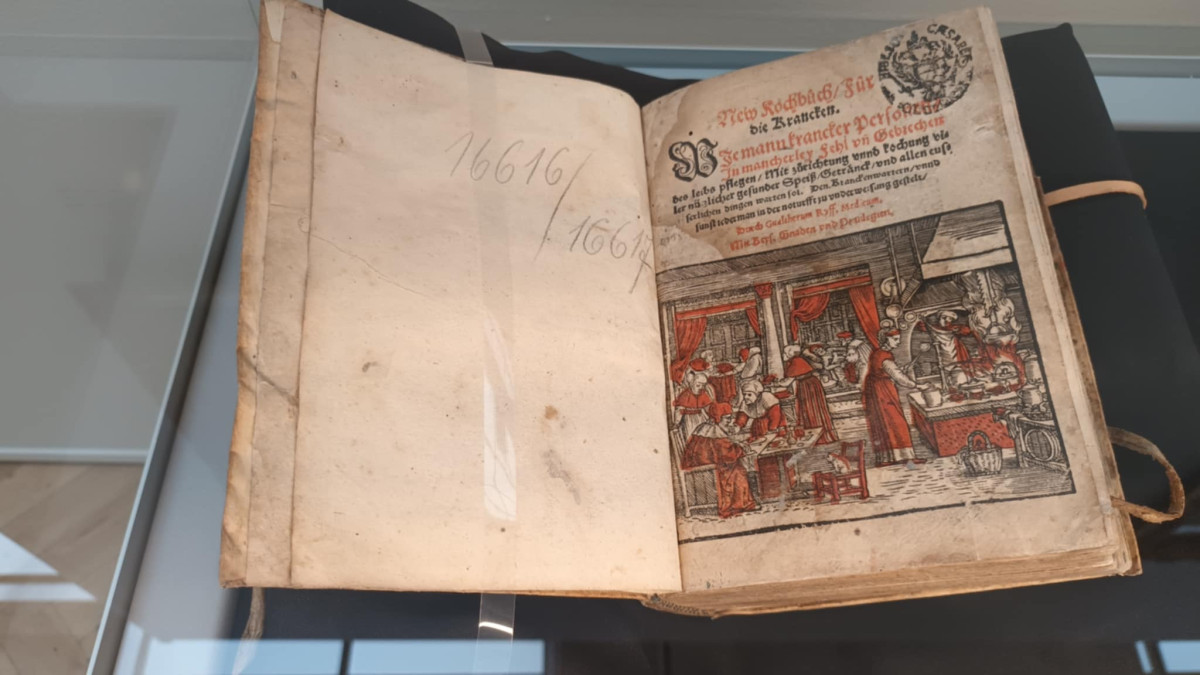 16616/
16617
New Kochbuch/ Für
die Krancken.
Wie mann krancker Personen
In mancherley Fehl vn̄ Gebrechen
des leibs pflegen/ Mit zůrichtung vnnd kochung vi-
ler nůzlicher gesunder Speiß/ Getränck/ vnd allen euſ-
ſerlichen dingen warten ſol. Den Kranckenwartern/ vnnd
ſunſt iederman in der noturfft zu vnderweiſung geſtelt/
Durch Gualtherum Ryff, Medicum.
Mit Keyſ. Gnaden vnd Priuilegien.
CAESAREA